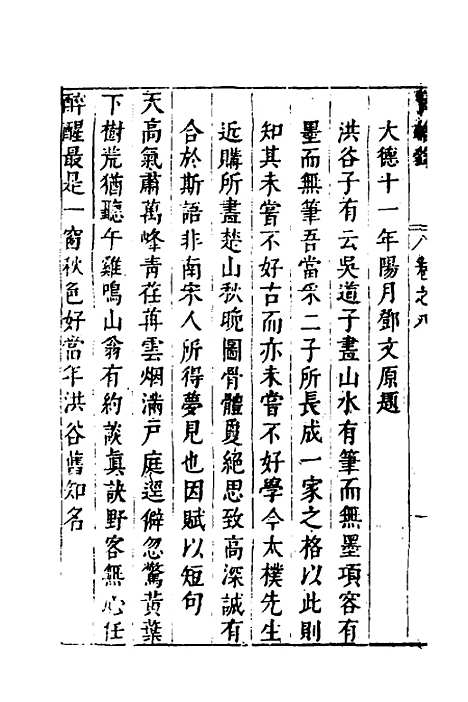 卷之八
一
大德十一年陽月鄧文原題
洪谷子有云吳道子畫山水有筆而無墨項容有
墨而無筆吾當采二子所長成一家之格以此則
知其未嘗不好古而亦未嘗不好學今太樸先生
近購所畫楚山秋晚圖骨體夐絕思致高深誠有
合於斯語非南宋人所得夢見也因賦以短句
天高氣肅萬峰青荏苒雲烟滿戶庭逕僻忽驚黃葉
下樹荒猶聽午雞鳴山翁有約談眞訣野客無心任
醉醒最是一窗秋色好當年洪谷舊知名